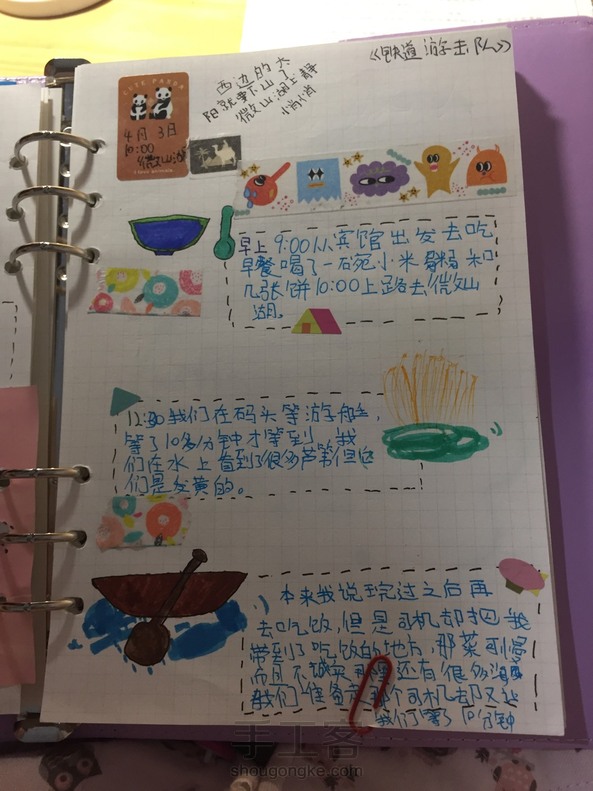 《铁道游击队》
西边的太
阳就要下山了
微山湖上静
悄悄
CUTE PANDA
4月3日
10:00
微山湖
I love animals
早上9:00从宾馆出发去吃
早餐喝了一碗小米粥和
几张饼10:00上路去微山
湖。
12:30我们在码头等游船,
等了10多分钟才等到,我
们在水上看到了很多芦苇但它
们是发黄的。
本来我说玩过之后再
去吃饭,但是司机却把我
带到了吃饭的地方,那菜
而且不
还有很多
我们准备走那个司机却又让
我们等了10分钟
手工客
shougongke.com